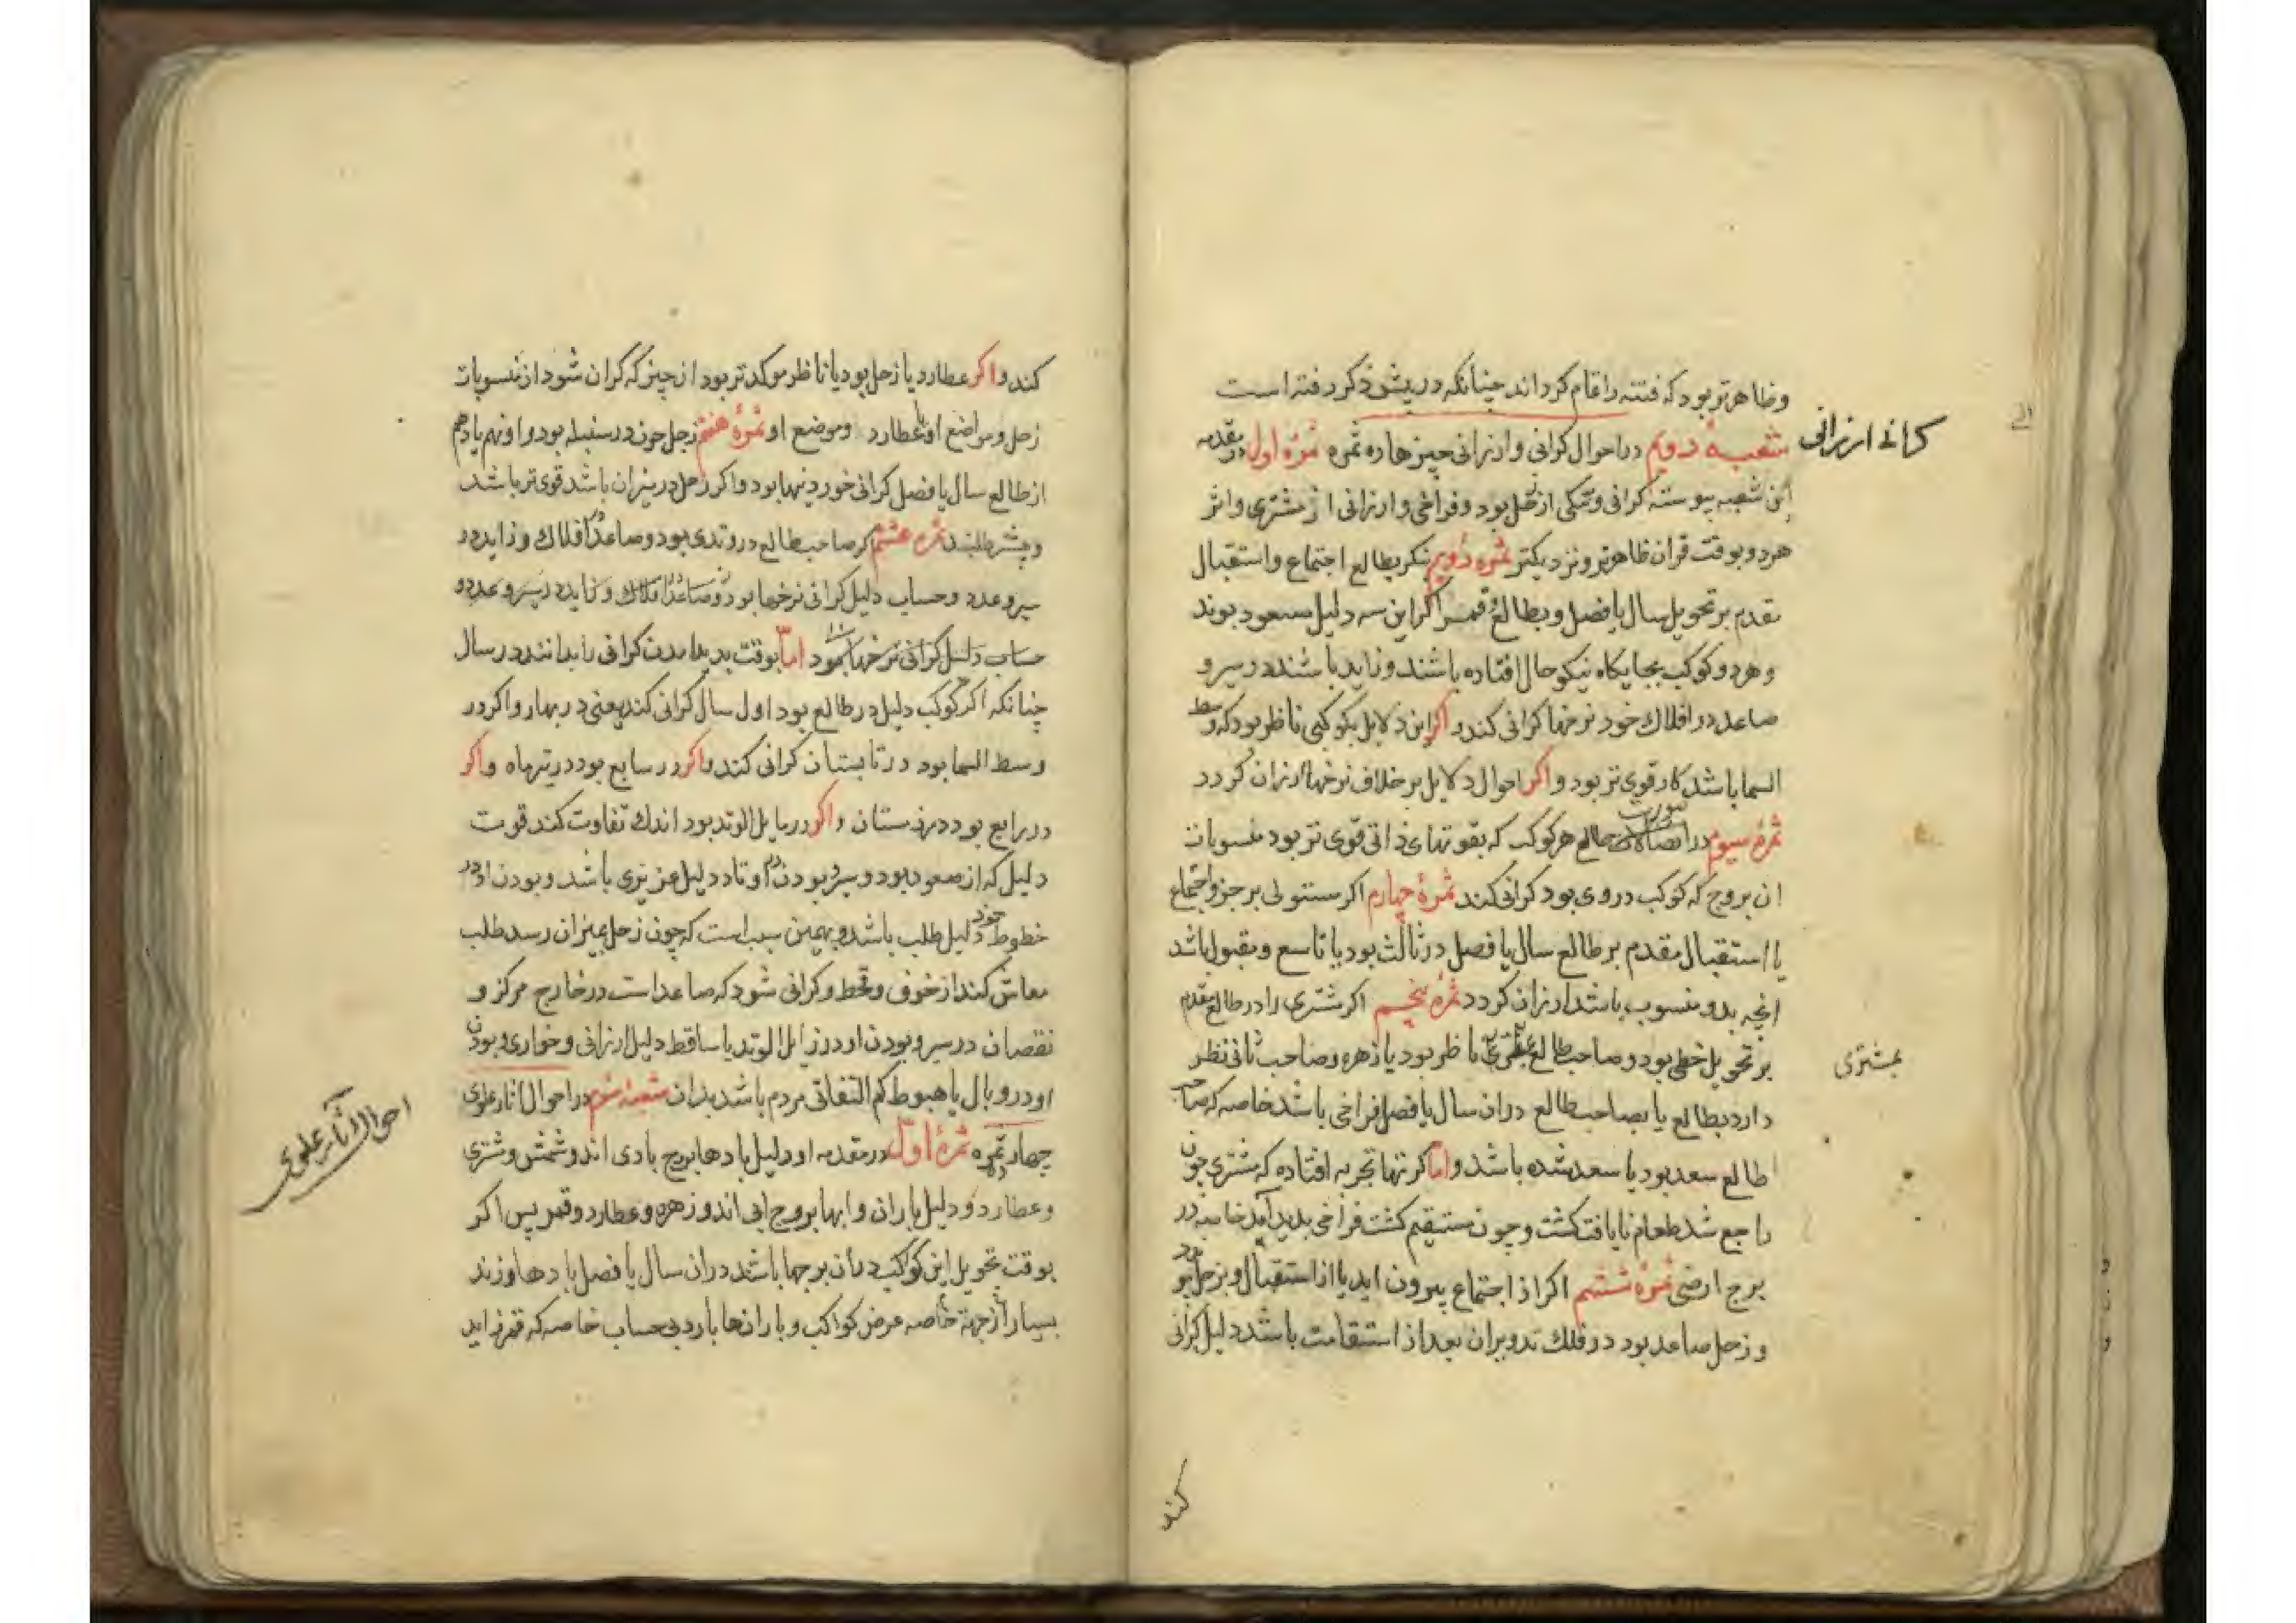 وظاهرتر بود که فتنه را قام کرداند چنانکه در پیش ذکر رفته است
کرانی ارزانی
شعبهٔ دویم در احوال کرانی وارزانی چیزها ده ثمره ثمرهٔ اول در مقدمه
این شعبه پیوسته کرانی وتنکی از زحل بود وفراخی وارزانی از مشتری واثر
هردو بوقت قران ظاهرتر ونزدیکتر ثمره دویم بنکر بطالع اجتماع واستقبال
مقدم بر تحویل سال یا فصل وبطالع وقمر اکر این سه دلیل مسعود بوند
وهردو کوکب بجایکاه نیکو حال افتاده باشند وزاید باشند در سیر و
صاعد در افلاک خود نرخها کرانی کند و اکر این دلایل بکوکبی ناظر بود که وسط
السما باشد کار قوی تر بود و اکر احوال دلایل بر خلاف نرخها ارزان کردد
ثمرهٔ سیوم در صالح هر کوکب که بقوتهای ذاتی قوی تر بود منسوبات
ان بروج که کوکب در وی بود کرانی کند ثمرهٔ چهارم اکر مستولی بر جزو اجتماع
یا استقبال مقدم بر طالع سال یا فصل در ثالث بود یا تاسع ومقبول باشد
انچه بدو منسوب باشد ارزان کردد ثمرهٔ پنجم اکر مشتری را در طالع مقدم
بر تحویل خطی بود وصاحب طالع ناظر بود یا زهره وصاحب ثانی نظر
بمشتری
دارد بطالع یا بصاحب طالع دران سال یا فصل فراخی باشد خاصه که صاحب
طالع سعد بود یا سعد شده باشد و اما کرتها تجربه افتاده که مشتری چون
راجع شد طعام نایافت کشت وچون مستقیم کشت فراخی بدید آید خاصه در
برج ارضی ثمرهٔ ششم اکر از اجتماع بیرون اید یا از استقبال وبزحل بود
وزحل صاعد بود در فلک تدویران بعد از استقامت باشد دلیل کرانی
کند
کند واکر عطارد یا زحل بود یا ناظر موکدتر بود از چیز که کران شود از منسوبات
زحل ومواضع او یا عطارد وموضع او ثمرهٔ هفتم زحل چون در سنبله بود واونهم یا دهم
از طالع سال یا فصل کرانی خوردنیها بود واکر زحل در میزان باشد قوی تر باشد
وبیشتر طلبند ثمره هشتم اکر صاحب طالع در وتدی بود وصاعد در افلاک وزاید در
سیر وعدد وحساب دلیل کرانی نرخها بود وصاعد در افلاک وزاید در سیر وعدد و
حساب دلیل کرانی نرخها بود اما بوقت پدید امدن کرانی را بدانند در سال
چنانکه اکر کوکب دلیل در طالع بود اول سال کرانی کند یعنی در بهار واکر در
وسط السما بود در تابستان کرانی کند واکر در سابع بود در تیرماه واکر
در رابع بود در زمستان واکر در مایل الوتد بود اندک تفاوت کند قوت
دلیل که از صعود بود وسیر وبودن در اوتاد دلیل عزیزی باشد وبودن او در
خطوط خود دلیل طلب باشد وبهمین سبب است که چون زحل بمیزان رسد طلب
معاش کند از خوف وقحط وکرانی شود که صاعد است در خارج مرکز و
نقصان در سیر وبودن او در زایل الوتد یا ساقط دلیل ارزانی وخواری وبودن
او در وبال یا هبوط کم التفاتی مردم باشد بدان شعبهٔ سیوم در احوال اثار علوی
احوال آثار علوی
چهار ثمره ثمرهٔ اول در مقدمه او دلیل بادها بروج بادی اند وشمس ومشتری
وعطارد ودلیل باران وابها بروج ابی اند وزهره وعطارد وقمر پس اکر
بوقت تحویل این کوکب دران برجها باشد دران سال یا فصل بادها وزند
بسیار از جهة خاصه عرض کواکب وبارانها بارد بی حساب خاصه که قمر زاید